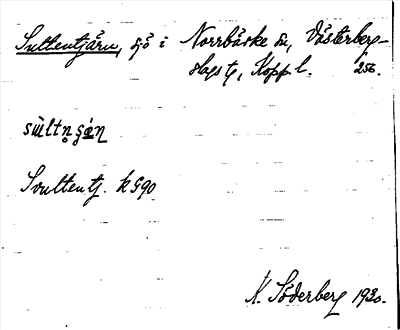 Sultentjärn, sjö i Norrbärke sn, Västerberg-
slags tg, Kopp l. 256.
sùltn̥ ʂǽn̥
Svultentj. k G90
K. Söderberg 1930.